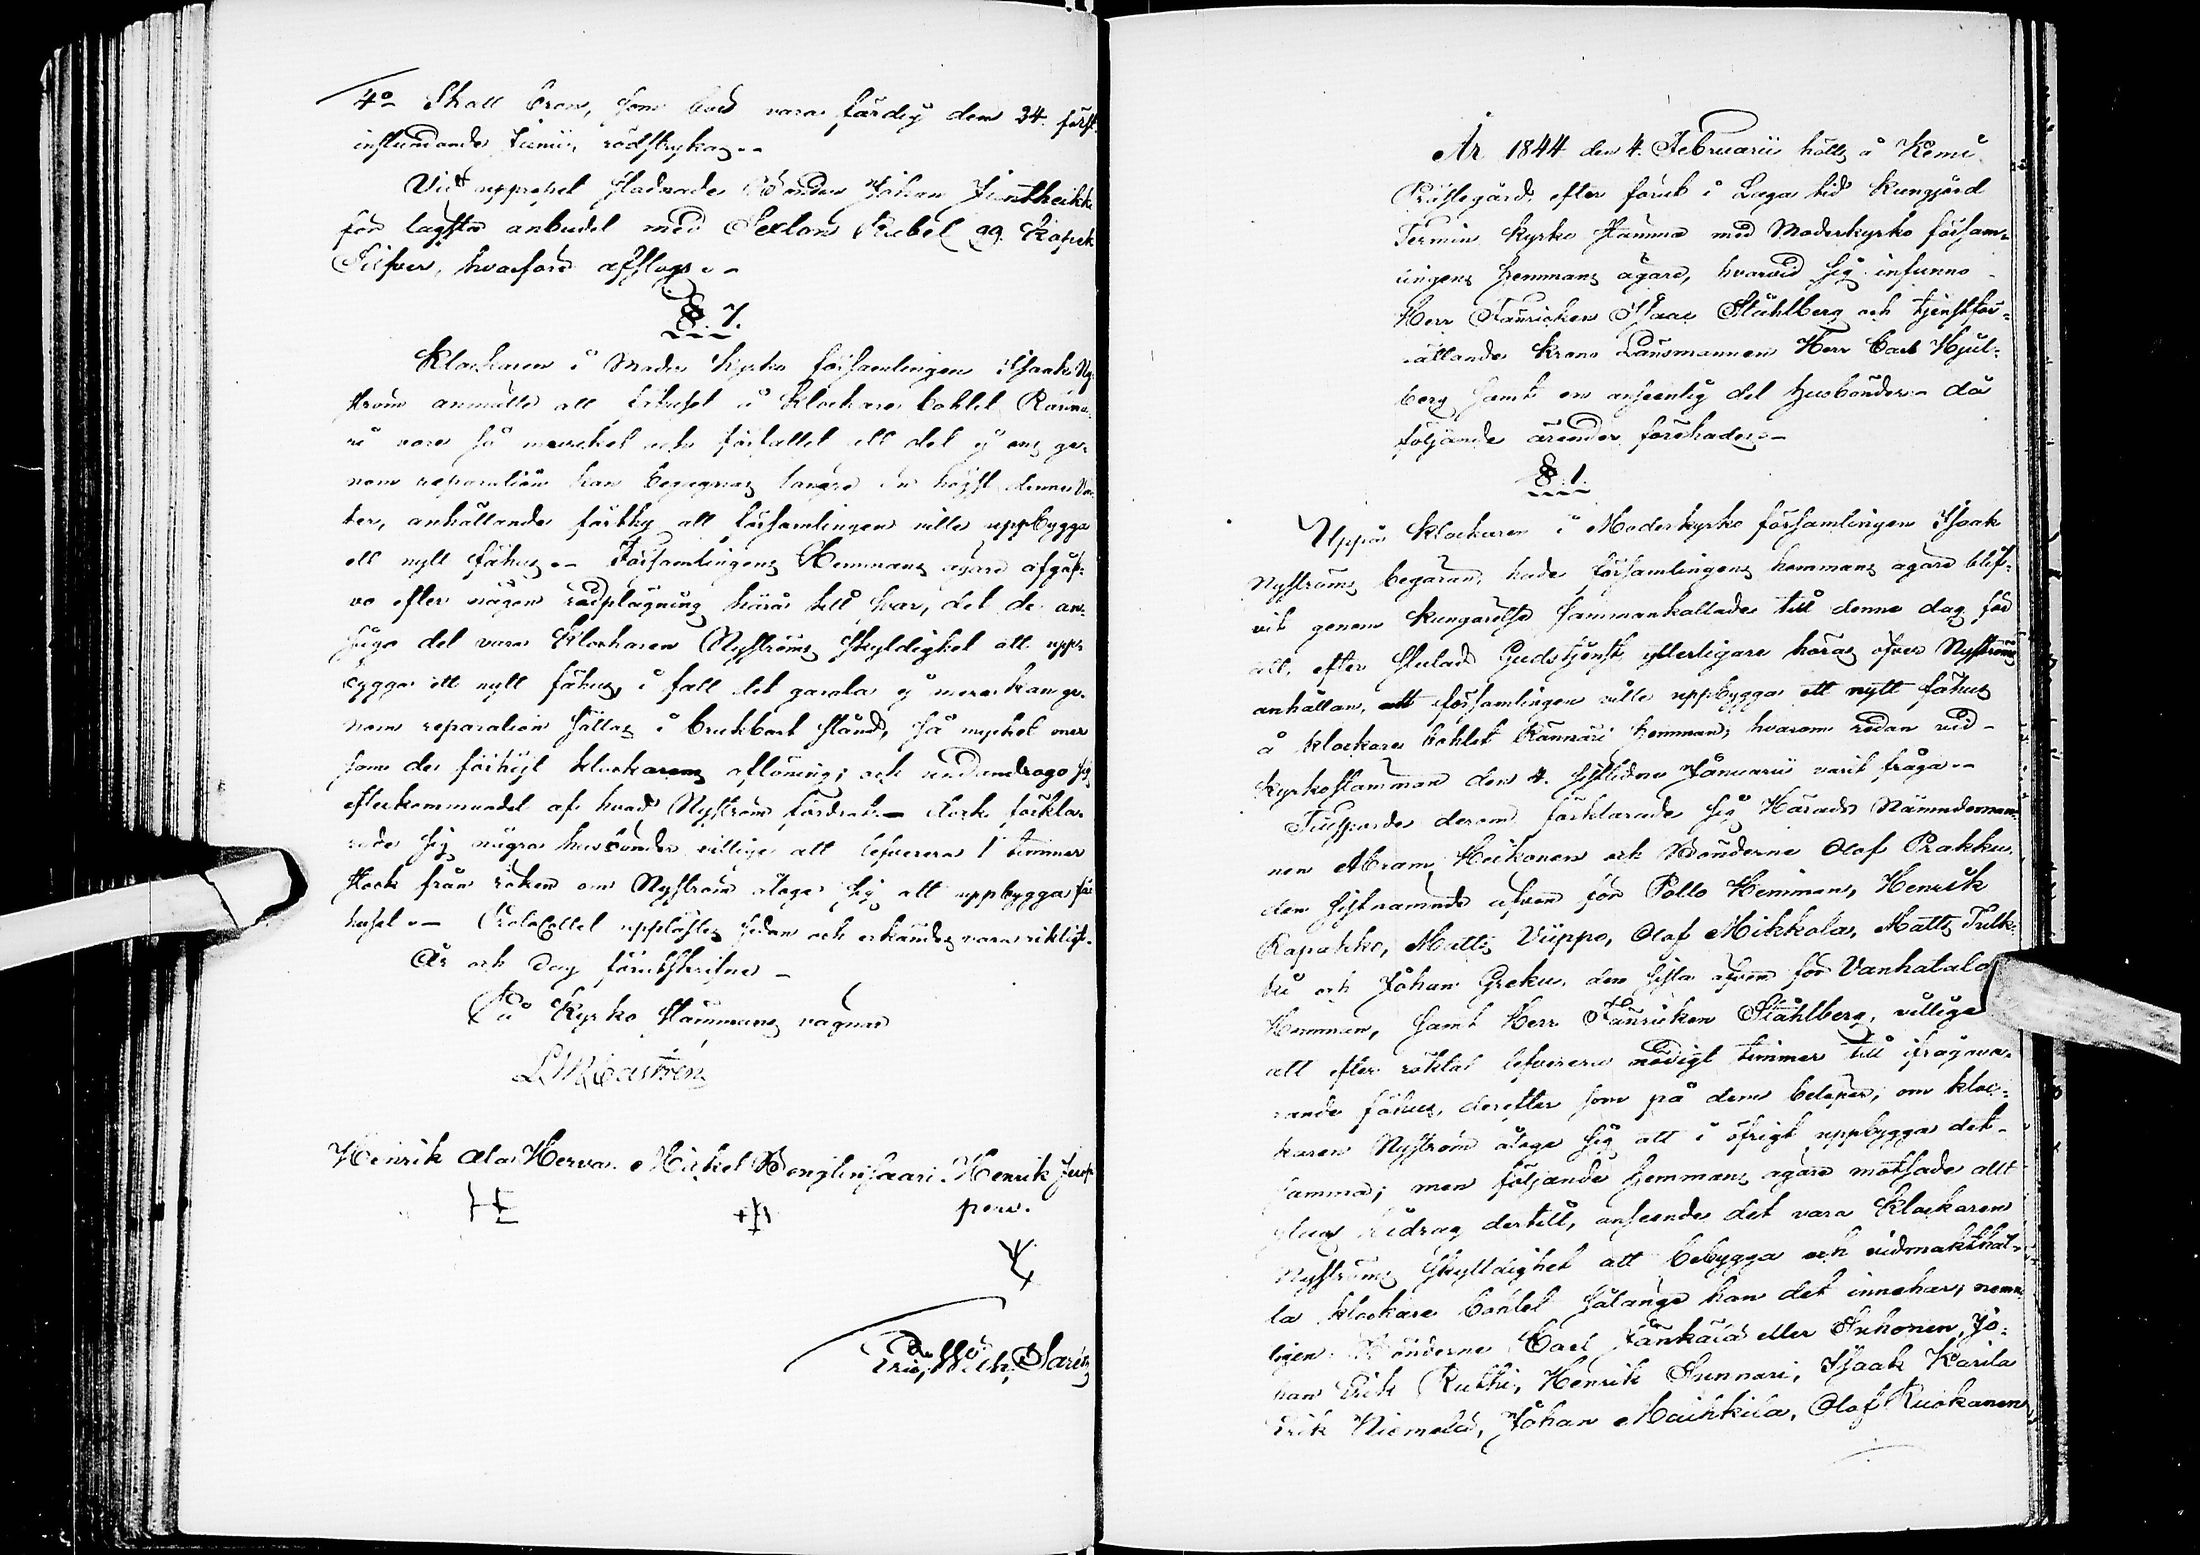 4o Skall bron, som bad vara färdig den 24. först
instundande Junii, rödstrykas.-
Vid uppropet stadnade Bonden Johan
för lägsta anbudet med Sexton Rubel 99. Kopek
Silfver, hvarföre afslogs.-
§. 7.
Klockaren i Moder Kyrko församlingen Isaak Ny-
ström anmälte att fähuset å Klockare bohlet Rännä-
ri vore så murket och förfallet att det ej ens ge-
nom reparation kan begagnas längre än högst denna vin-
ter, anhållande förthy att församlingen ville uppbygga
ett nytt fähus.- Församlingens Hemmans ägare afgåf-
vo efter någon rådplägning härå till svar, det de an-
sågo det vara Klockaren Nyströms skyldighet att upp-
bygga ett nytt fähus, i fall det gamla ej mera kan ge-
nom reparation sättas i brukbart stånd, så mycket mer
som de förhöjt klockarens aflöning; och undandrogo sig
efterkommandet af hvad Nyström fordrat.- dock förkla-
rade sig några husbönder villige att lefverera 1 timmer
stock från röken om Nyström åtager sig att uppbygga fä-
huset.- Protocollet upplästes sedan och erkändes vara riktigt.
År och Dag förutskrifne -
På Kyrko Stämmans vägnar
L M Castrén
Henrik Ala Herva. Mickel Bengtinsaari. Henrik
pera.
År 1844 den 4. Februarii hölts å Kemi
Prästegård, efter förut i Laga tid kungjord
Termin Kyrko Stämma med Moderkyrko försam-
lingens Hemmans ägare, hvarvid sig infunno
Herr Fänricken Isaac Ståhlberg och tjenstför-
rättande Krono Länsmannen Herr Carl Hjul-
berg samt en ansenlig del husbönder.- då
följande ärender förehades.-
§. 1.
Uppå Klockaren i Moderkyrko församlingen Isaak
Nyströms begäran, hade församlingens hemmans ägare blif-
vit genom kungörelse sammankallade till denne dag för
att, efter slutad Gudstjenst, ytterligare höras öfver Nyströms
anhållan, att församlingen ville uppbygga ett nytt fähus
å klockare bohlet Rännäri hemman, hvarom redan vid
kyrkostämman den 4. sistledne Januarii varit fråga.-
Tillspordes derom förklarade sig Härads Nämndeman-
nen Abram Heikonen och Bönderne Olof Prakku,
den sistnämnde äfven för Pello Hemman, Henrik
Rapakko, Matts Viippo, Olof Mikkola, Matts Tulk-
ku och Johan Greku, den sista äfven för Vanhatalo
Hemman, samt Herr Fänricken Ståhlberg, villige
att efter röktal lefverera nödigt timmer till ifrågava-
rande fähus, derefter som på dem belöper, om kloc-
karen Nyström åtager sig att i öfrigt uppbygga det-
samma; men följande hemmans ägare motsade allt
slags bidrag dertill, anseende det vara Klockaren
Nyströms skyldighet att bebygga och vidmakthål-
la klockare bohlet sålänge han det innehar; nemm-
ligen Bönderne Carl Jänkälä eller Inhonen, Jo-
han Erik Rutti, Henrik Sunnari, Isaak Karila
Erik Niemelä, Johan Maihkila, Olof Ruokanen